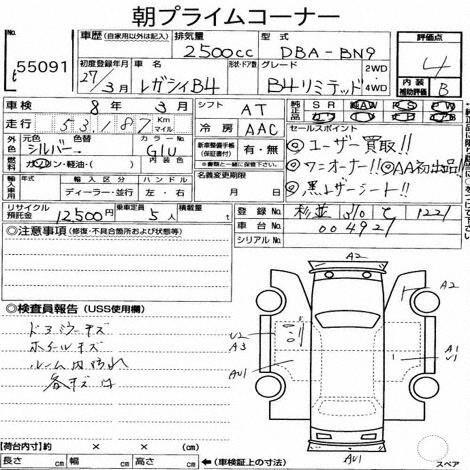 朝プライムコーナー
55091
車歴 (自家用以外は記入) 排気量 2500cc 型式 DBA-BN9 評価点 4
初度登録年月 27/3月 車名 レガシィB4 形状・ドア数 グレード B4リミテッド 2WD 4WD 内装 補助評価 B
車検 8年 3月 シフト AT 純正 SR AW PS PW
走行 53,187 Km マイル 冷房 AAC セールスポイント
外元色 シルバー 色替 カラーNo G1U 新車整備手帳 (保証書付) 有・無 ◎ユーザー買取!!
燃料 ガソリン・軽油・( ) 内装色 ←一致に〇をして下さい ◎ワンオーナー!! ◎AA初出品!!
輸入車用 年式 輸入区分 ディーラー・並行 ハンドル 左・右 名義変更期限 年 月 日 ◎黒レザーシート!!
リサイクル預託金 12,500円 乗車定員 5人 積載量 t 登録No. 杉並 310 て 1221
◎注意事項 (修復・不具合箇所および状態等) 車台No. 004927
シリアルNo.
◎検査員報告 (USS使用欄)
ドアミラーキズ
ホイールキズ
ルーム内汚れ
各キズ凹
A2
A2
U2
A3
AU1
A1
U1
AU1
【荷台内寸】 × ×
長さ cm 幅 cm 高さ cm ←(車検証上の寸法)
スペア